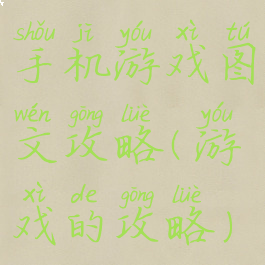 shǒu jī yóu xì tú
手机游戏图
wén gōng lüè yóu
文攻略(游
xì de gōng lüè
戏的攻略)